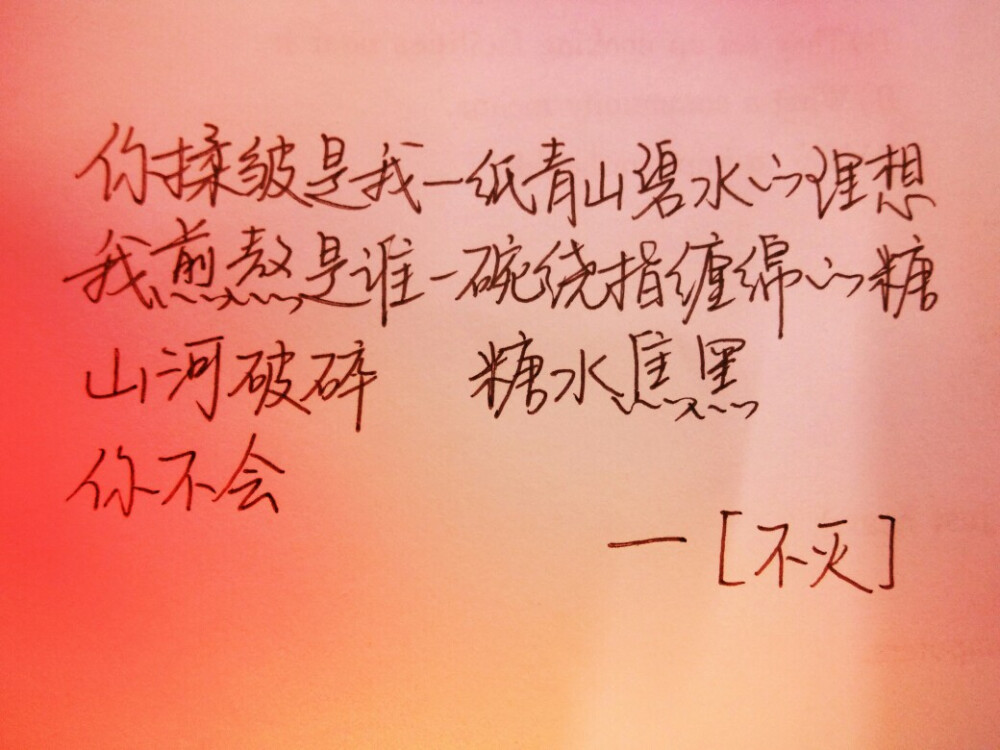 你揉皱是我一纸青山碧水的理想
我煎熬是谁一碗绕指缠绵的糖
山河破碎 糖水焦黑
你不会
—[不灭]